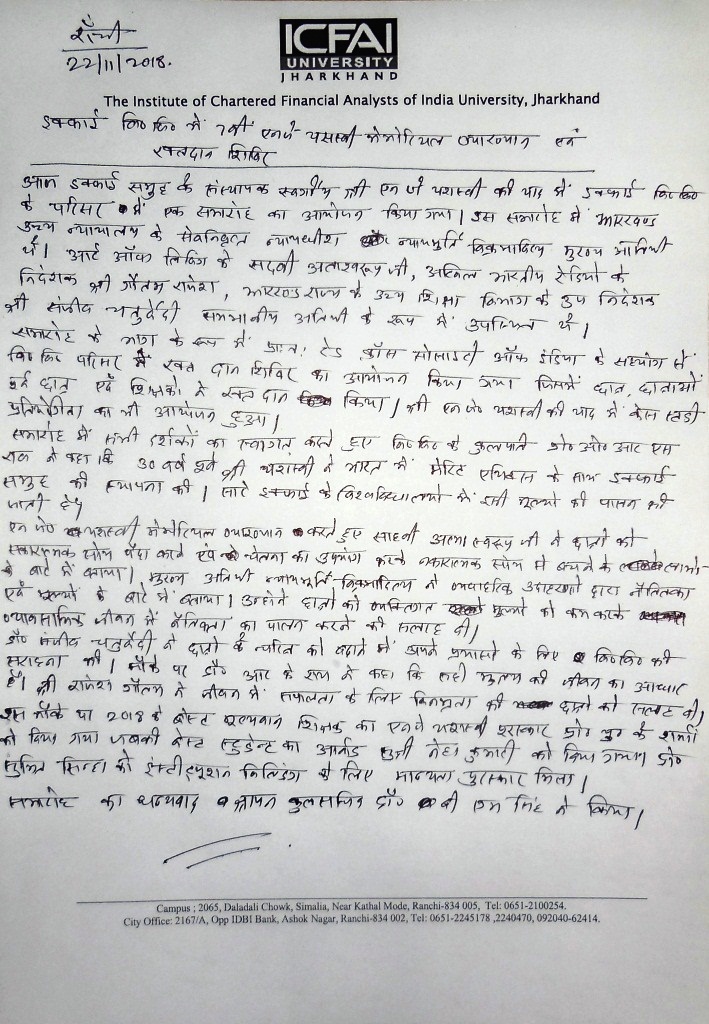 राँची
22/11/2018.
ICFAI
UNIVERSITY
JHARKHAND
The Institute of Chartered Financial Analysts of India University, Jharkhand
इक्फाई वि० वि० में 7वीं एनजे यशस्वी मेमोरियल व्याख्यान एवं
रक्तदान शिविर
आज इक्फाई समूह के संस्थापक स्वर्गीय श्री एन जे यशस्वी की याद में इक्फाई वि० वि०
के परिसर में एक समारोह का आयोजन किया गया। इस समारोह में झारखण्ड
उच्च न्यायालय के सेवानिवृत्त न्यायधीश न्यायमूर्ति विक्रमादित्य मुख्य अतिथि
थे। आर्ट ऑफ लिविंग के सदवी जी, अखिल भारतीय रेडियो के
निदेशक श्री गौतम राजेश, झारखण्ड राज्य के उच्च शिक्षा विभाग के उप निदेशक
श्री संजीव चतुर्वेदी सम्मानीय अतिथी के रूप में उपस्थित थे।
समारोह के भाग के रूप में प्रातः रेड क्रॉस सोसाइटी ऑफ इंडिया के सहयोग से
वि० वि० परिसर में रक्त दान शिविर का आयोजन किया गया जिसमें छात्र, छात्राओं
पूर्व छात्र एवं शिक्षकों ने रक्त दान किया। श्री एन जे० यशस्वी की याद में केस स्टडी
प्रतियोगिता का भी आयोजन हुआ।
समारोह में सभी दर्शकों का स्वागत करते हुए वि० वि० के कुलपति प्रो० ओ० आर एस
राव ने कहा कि 30 वर्ष पूर्व श्री यशस्वी ने भारत में मेरिट के साथ इक्फाई
समूह की स्थापना की। सारे इक्फाई के विश्वविद्यालयों में इसी मूल्यों की पालन की
जाती है।
एन जे० यशस्वी मेमोरियल व्याख्यान करते हुए साध्वी जी ने छात्रों को
सकारात्मक सोच पैदा करने एवं चेतना का उपयोग करके नकारात्मक सोच से बचने के
के बारे में बताया। मुख्य अतिथि न्यायमूर्ति विक्रमादित्य ने व्यवहारिक उदाहरणों द्वारा नैतिकता
एवं मूल्यों के बारे में बताया। उन्होंने छात्रों को व्यक्तिगत मूल्यों को कम करके
व्यावसायिक जीवन में नैतिकता का पालन करने की सलाह दी।
डॉ० संजीव चतुर्वेदी ने छात्रों के चरित्र को बढ़ाने में अपने प्रयासों के लिए वि० वि० की
सराहना की। मौके पर प्रो० आर के राय ने कहा कि सही मूल्य ही जीवन का आधार
है। श्री राजेश गौतम ने जीवन में सफलता के लिए विनम्रता की छात्रों को सलाह दी।
इस मौके पर 2018 के बेस्ट मूल्यवान शिक्षक का एनजे यशस्वी पुरस्कार प्रो० के शर्मा
को दिया गया जबकी बेस्ट स्टुडेन्ट का आवार्ड सुश्री नेहा कुमारी को दिया गया। प्रो०
सुमित सिन्हा को इंस्टीट्यूशन बिल्डिंग के लिए मान्यता पुरस्कार मिला।
समारोह का धन्यवाद ज्ञापन कुलसचिव डॉ० बी एम सिंह ने किया।
Campus : 2065, Daladali Chowk, Simalia, Near Kathal Mode, Ranchi-834 005, Tel: 0651-2100254.
City Office: 2167/A, Opp IDBI Bank, Ashok Nagar, Ranchi-834 002, Tel: 0651-2245178 ,2240470, 092040-62414.